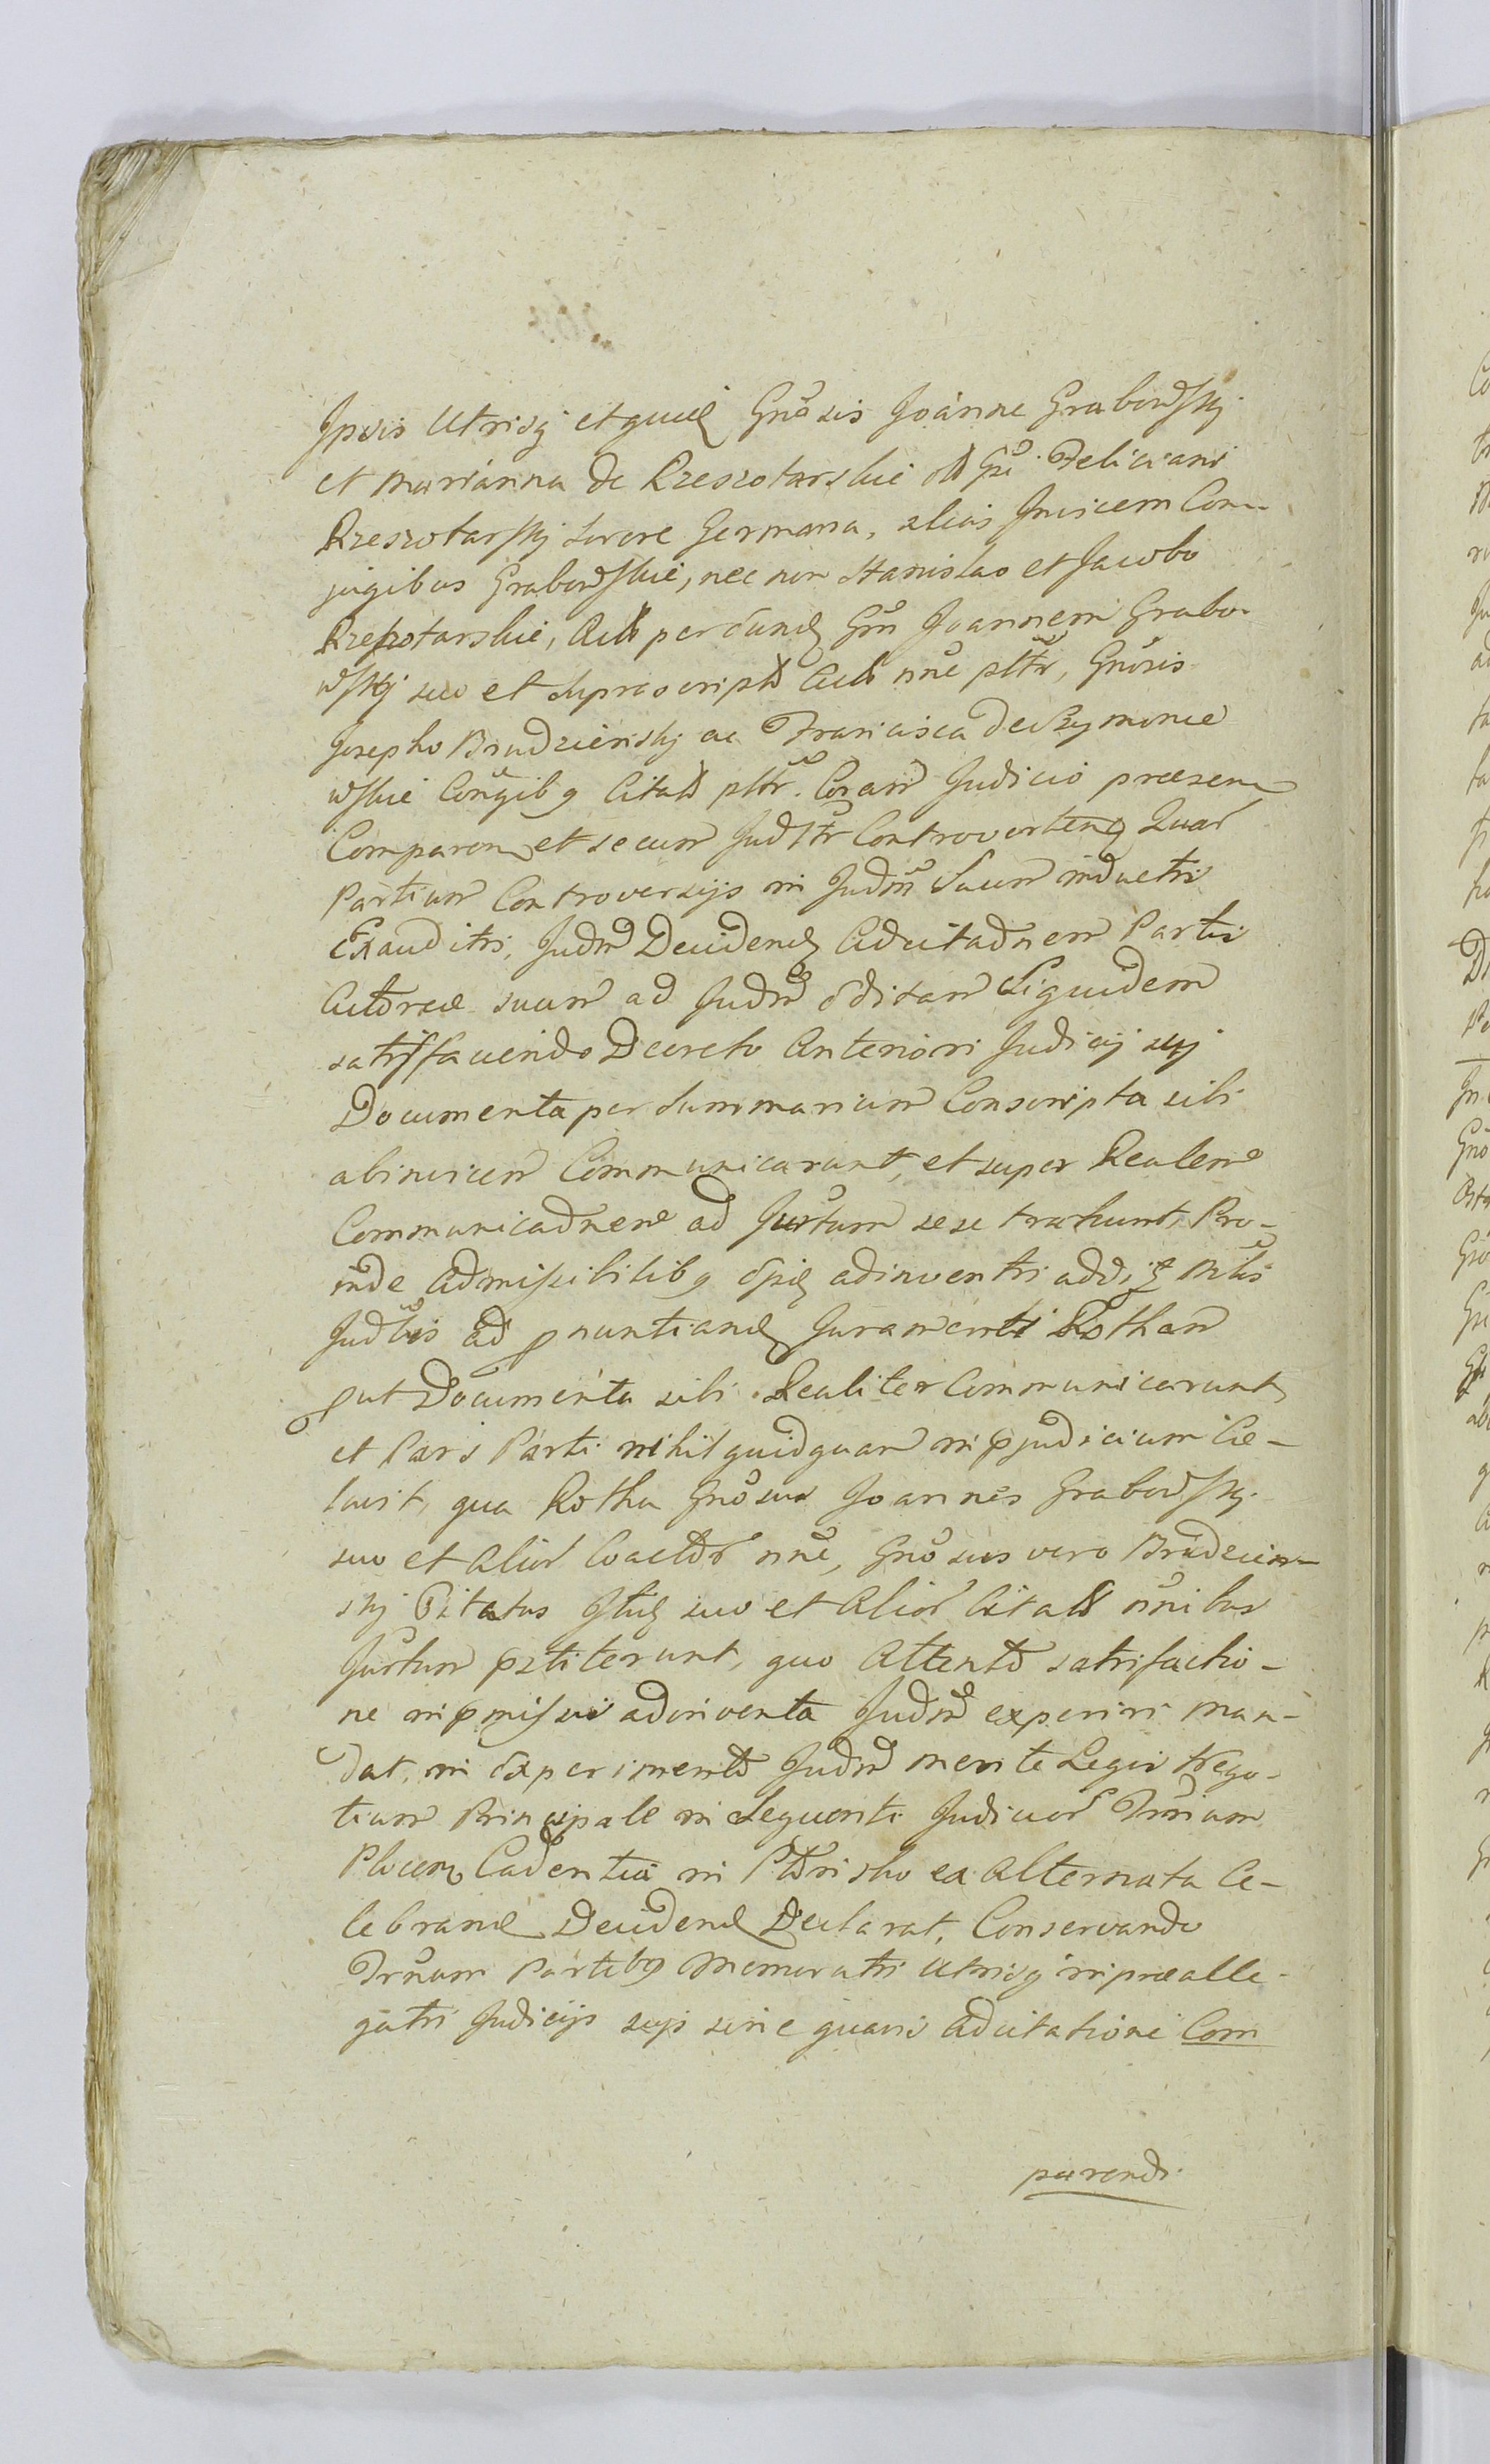 Ipsis Utrisq et quid Gnosis Joanne Grabowskj
et Marianna de Rzeszotarskie olt Gni Feliciani
Rzeszotarskj sorore Germana, alias Invicem Con-
jugibus Grabowskie, nec non Stanislao et Jacobo
Rzeszotarskie, Actt per eund Gnm Joannem Grabo-
wskj suo et suprascriptt Actt nne pltr, Gnosis
Josepho Brudzienskj ac Francisca de Szymono
wskie Conjgibq Citatt pltr. Coram Judicio praesen
Comparen et secum Judltr Controverten Quar
Partium Controversijs in Judm Suum inductis
Exauditis, Judm Decidend Adcitaonem Partis
Actoreae suum ad Judm editam Siquidem
satisfaciendo Decreto Anteriori Judicij suj
Documenta per summarium Conscripta sibi
abinvicem Communicarunt, et super Realem
Communicaonem ad Jurtum sese trahunt, Pro-
inde Admissibilibq adinventis addit Mtis
Judlis ad pnuntiand Juramenti Rotham
put Documenta sibi Realiter Communicarunt
et Pars Parti nihil quidquam in pjudicium Ce-
lavit, qua Rotha Gnosus Joannes Grabowskj
suo et Alior Coactor nne, Gnosus vero Brudzien-
skj Citatus suo et Alior Citatt nnibus
Jurtum pstiterunt, quo Attento satisfactio-
ne in pmissis adinventa Judm experiri man-
dat, in experimento Judm mente Legis Nego-
tium Principale in Sequenti Judicior Trnium
Plocen Cadentia in ex Alternata Ce-
lebrand Decidend Declarat, Conservando
Trnum Partibq Memoratis Utrisq in prealle-
gatis Judicijs sujs sine quavis Adcitatione Com
parendi